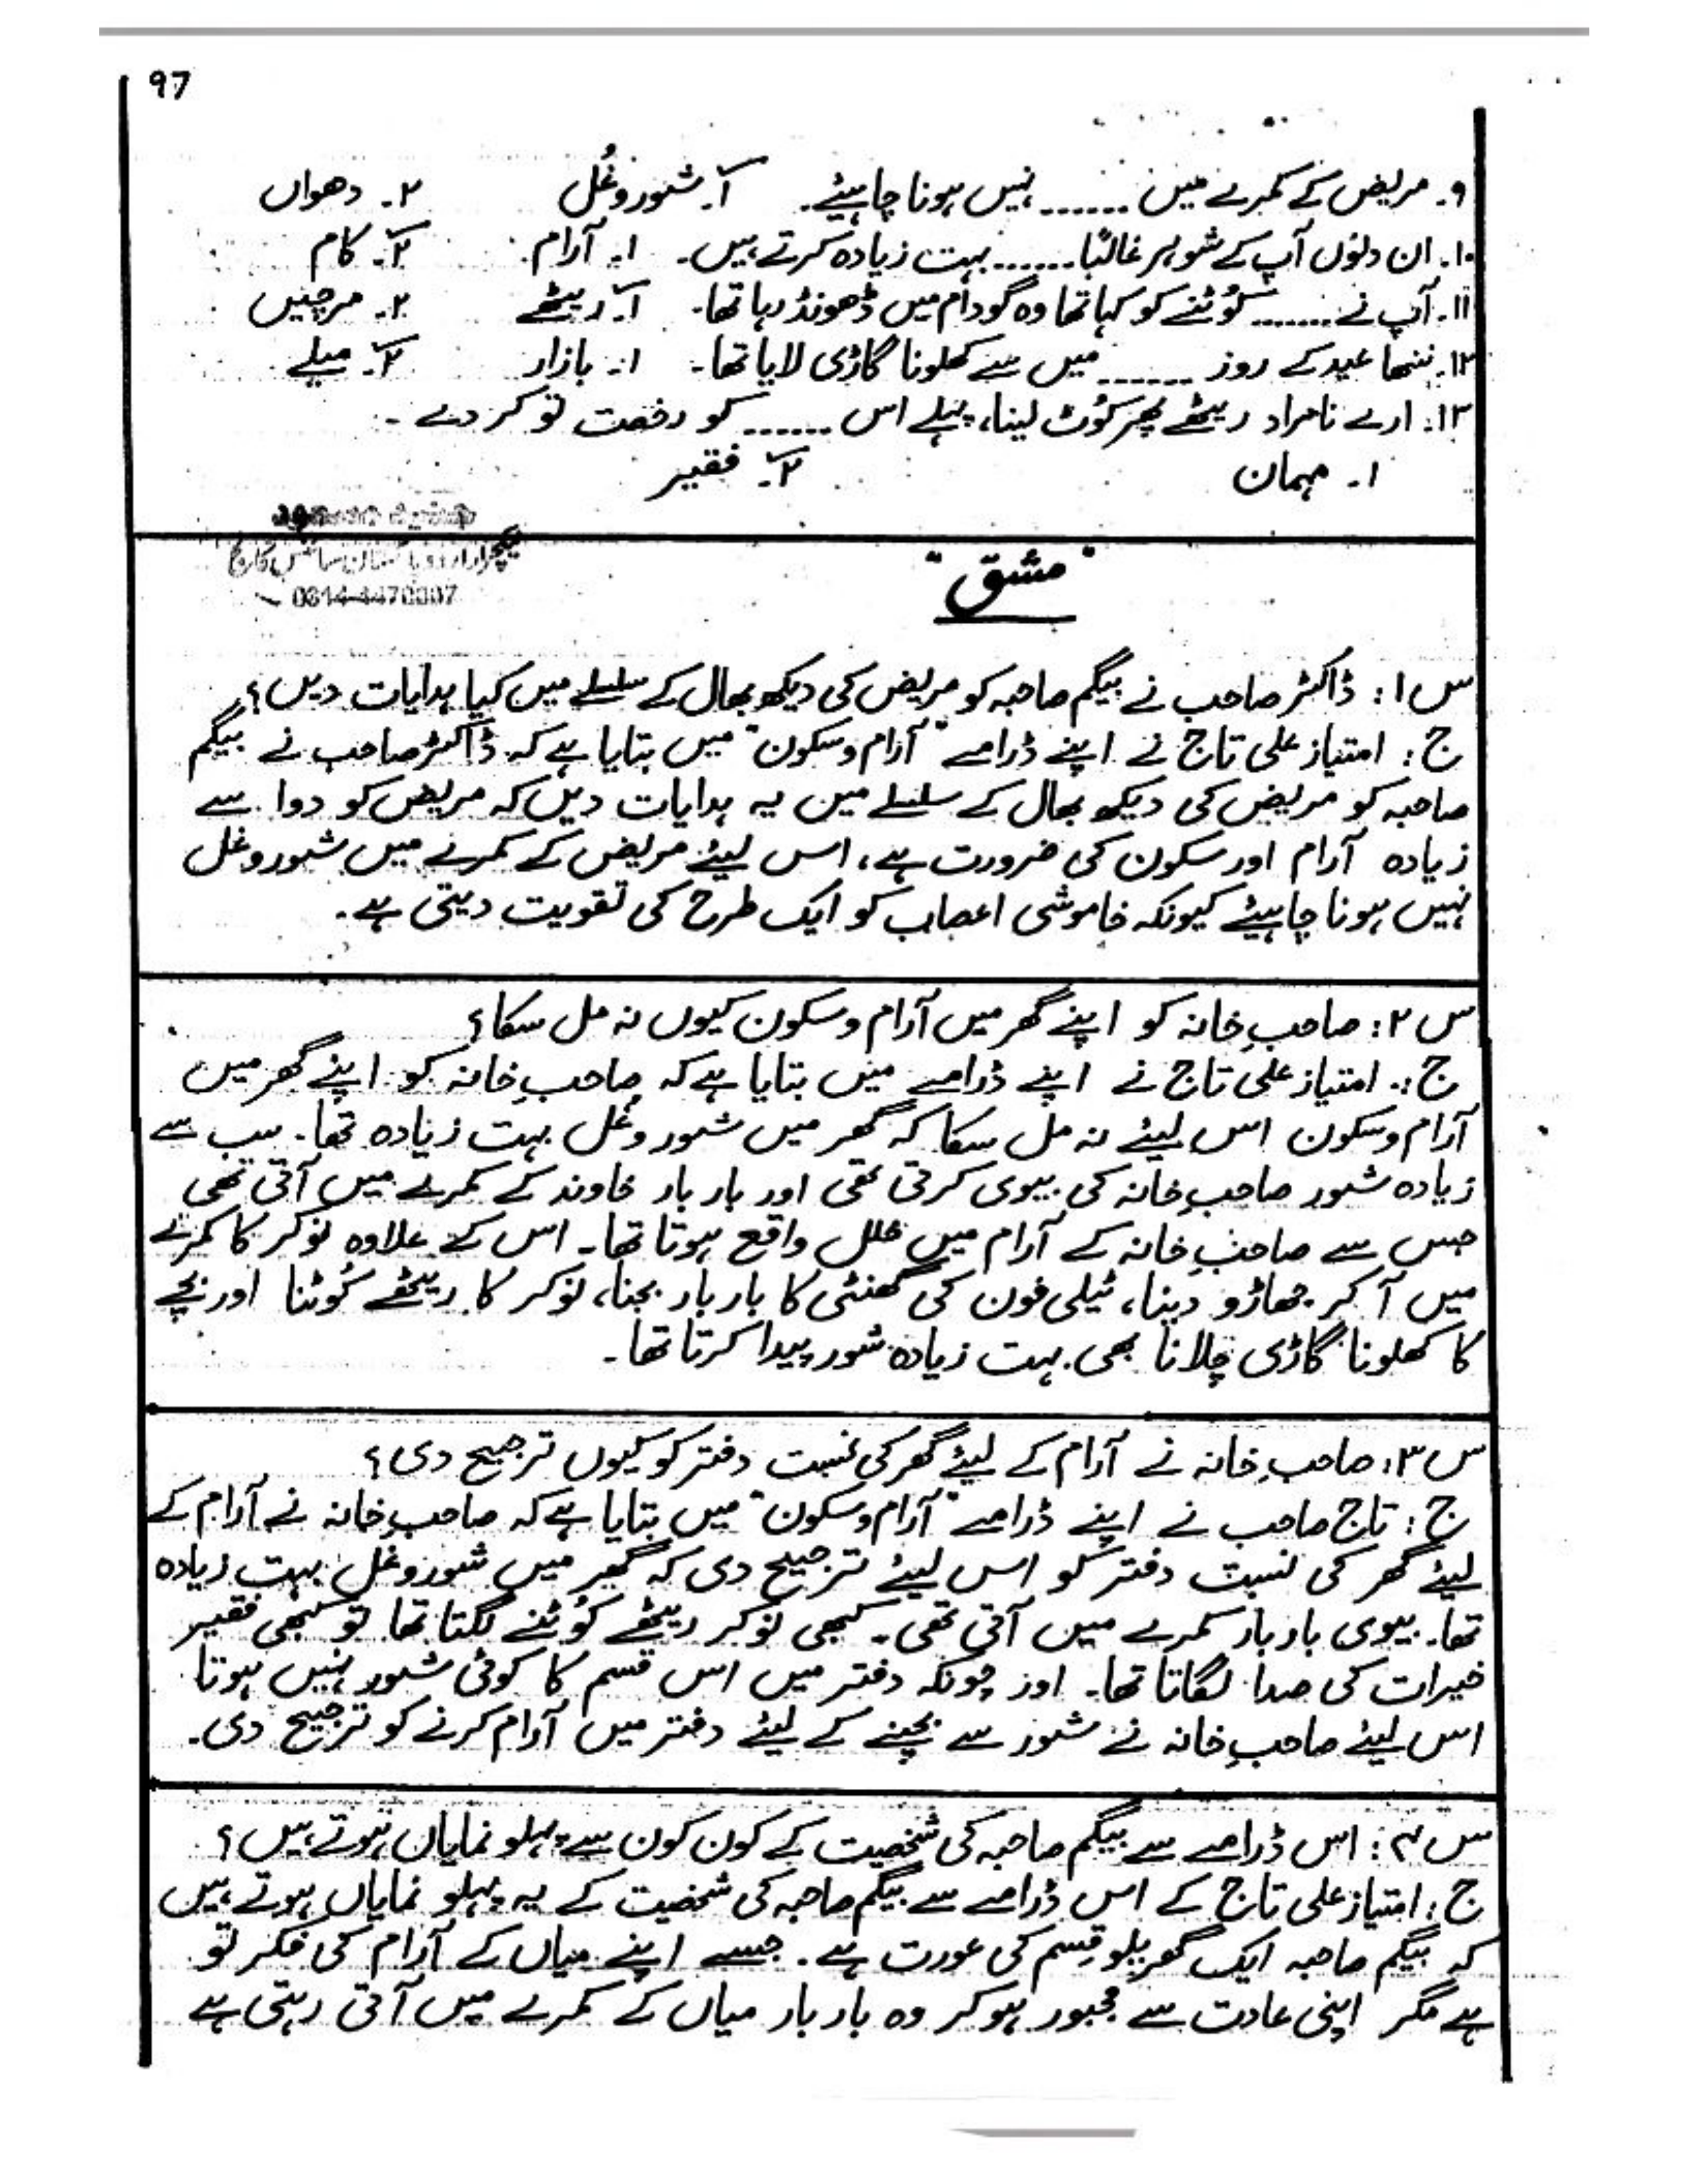 97
۹۔ مریض کے کمرے میں ...... نہیں ہونا چاہیئے۔ ۱۔ شوروغُل ۲۔ دھواں
۱۰۔ ان دنوں آپ کے شوہر غالبًا ...... بہت زیادہ کرتے ہیں۔ ۱۔ آرام ۲۔ کام
۱۱۔ آپ نے ...... کُوٹنے کو کہا تھا وہ گودام میں ڈھونڈ رہا تھا۔ ۱۔ ریٹھے ۲۔ مرچیں
۱۲۔ ننھا عید کے روز ...... میں سے کھلونا گاڑی لایا تھا۔ ۱۔ بازار ۲۔ میلے
۱۳۔ ارے نامراد ریٹھے پھر کُوٹ لینا، پہلے اس ...... کو رخصت تو کر دے۔
۱۔ مہمان ۲۔ فقیر
لیکچرار اردو پاکستان سائنس کالج
"مشق"
س۱: ڈاکٹر صاحب نے بیگم صاحبہ کو مریض کی دیکھ بھال کے سلسلے میں کیا ہدایات دیں؟
ج: امتیاز علی تاج نے اپنے ڈرامے "آرام و سکون" میں بتایا ہے کہ ڈاکٹر صاحب نے بیگم
صاحبہ کو مریض کی دیکھ بھال کے سلسلے میں یہ ہدایات دیں کہ مریض کو دوا سے
زیادہ آرام اور سکون کی ضرورت ہے، اس لیئے مریض کے کمرے میں شوروغل
نہیں ہونا چاہیئے کیونکہ خاموشی اعصاب کو ایک طرح کی تقویت دیتی ہے۔
س۲: صاحبِ خانہ کو اپنے گھر میں آرام و سکون کیوں نہ مل سکا؟
ج:۔ امتیاز علی تاج نے اپنے ڈرامے میں بتایا ہے کہ صاحبِ خانہ کو اپنے گھر میں
آرام و سکون اس لیئے نہ مل سکا کہ گھر میں شور و غُل بہت زیادہ تھا۔ سب سے
زیادہ شور صاحبِ خانہ کی بیوی کرتی تھی اور بار بار خاوند کے کمرے میں آتی تھی
جس سے صاحبِ خانہ کے آرام میں خلل واقع ہوتا تھا۔ اس کے علاوہ نوکر کا کمرے
میں آ کر جھاڑو دینا، ٹیلی فون کی گھنٹی کا بار بار بجنا، نوکر کا ریٹھے کُوٹنا اور بچے
کا کھلونا گاڑی چلانا بھی بہت زیادہ شور پیدا کرتا تھا۔
س۳: صاحبِ خانہ نے آرام کے لیئے گھر کی نسبت دفتر کو کیوں ترجیح دی؟
ج: تاج صاحب نے اپنے ڈرامے "آرام و سکون" میں بتایا ہے کہ صاحبِ خانہ نے آرام کے
لیئے گھر کی نسبت دفتر کو اس لیئے ترجیح دی کہ گھر میں شوروغل بہت زیادہ
تھا۔ بیوی بار بار کمرے میں آتی تھی۔ کبھی نوکر ریٹھے کُوٹنے لگتا تھا تو کبھی فقیر
خیرات کی صدا لگاتا تھا۔ اور چونکہ دفتر میں اس قسم کا کوئی شور نہیں ہوتا
اس لیئے صاحبِ خانہ نے شور سے بچنے کے لیئے دفتر میں آرام کرنے کو ترجیح دی۔
س۴: اس ڈرامے سے بیگم صاحبہ کی شخصیت کے کون کون سے پہلو نمایاں ہوتے ہیں؟
ج: امتیاز علی تاج کے اس ڈرامے سے بیگم صاحبہ کی شخصیت کے یہ پہلو نمایاں ہوتے ہیں
کہ بیگم صاحبہ ایک گھریلو قسم کی عورت ہے۔ جسے اپنے میاں کے آرام کی فکر تو
ہے مگر اپنی عادت سے مجبور ہو کر وہ بار بار میاں کے کمرے میں آتی رہتی ہے